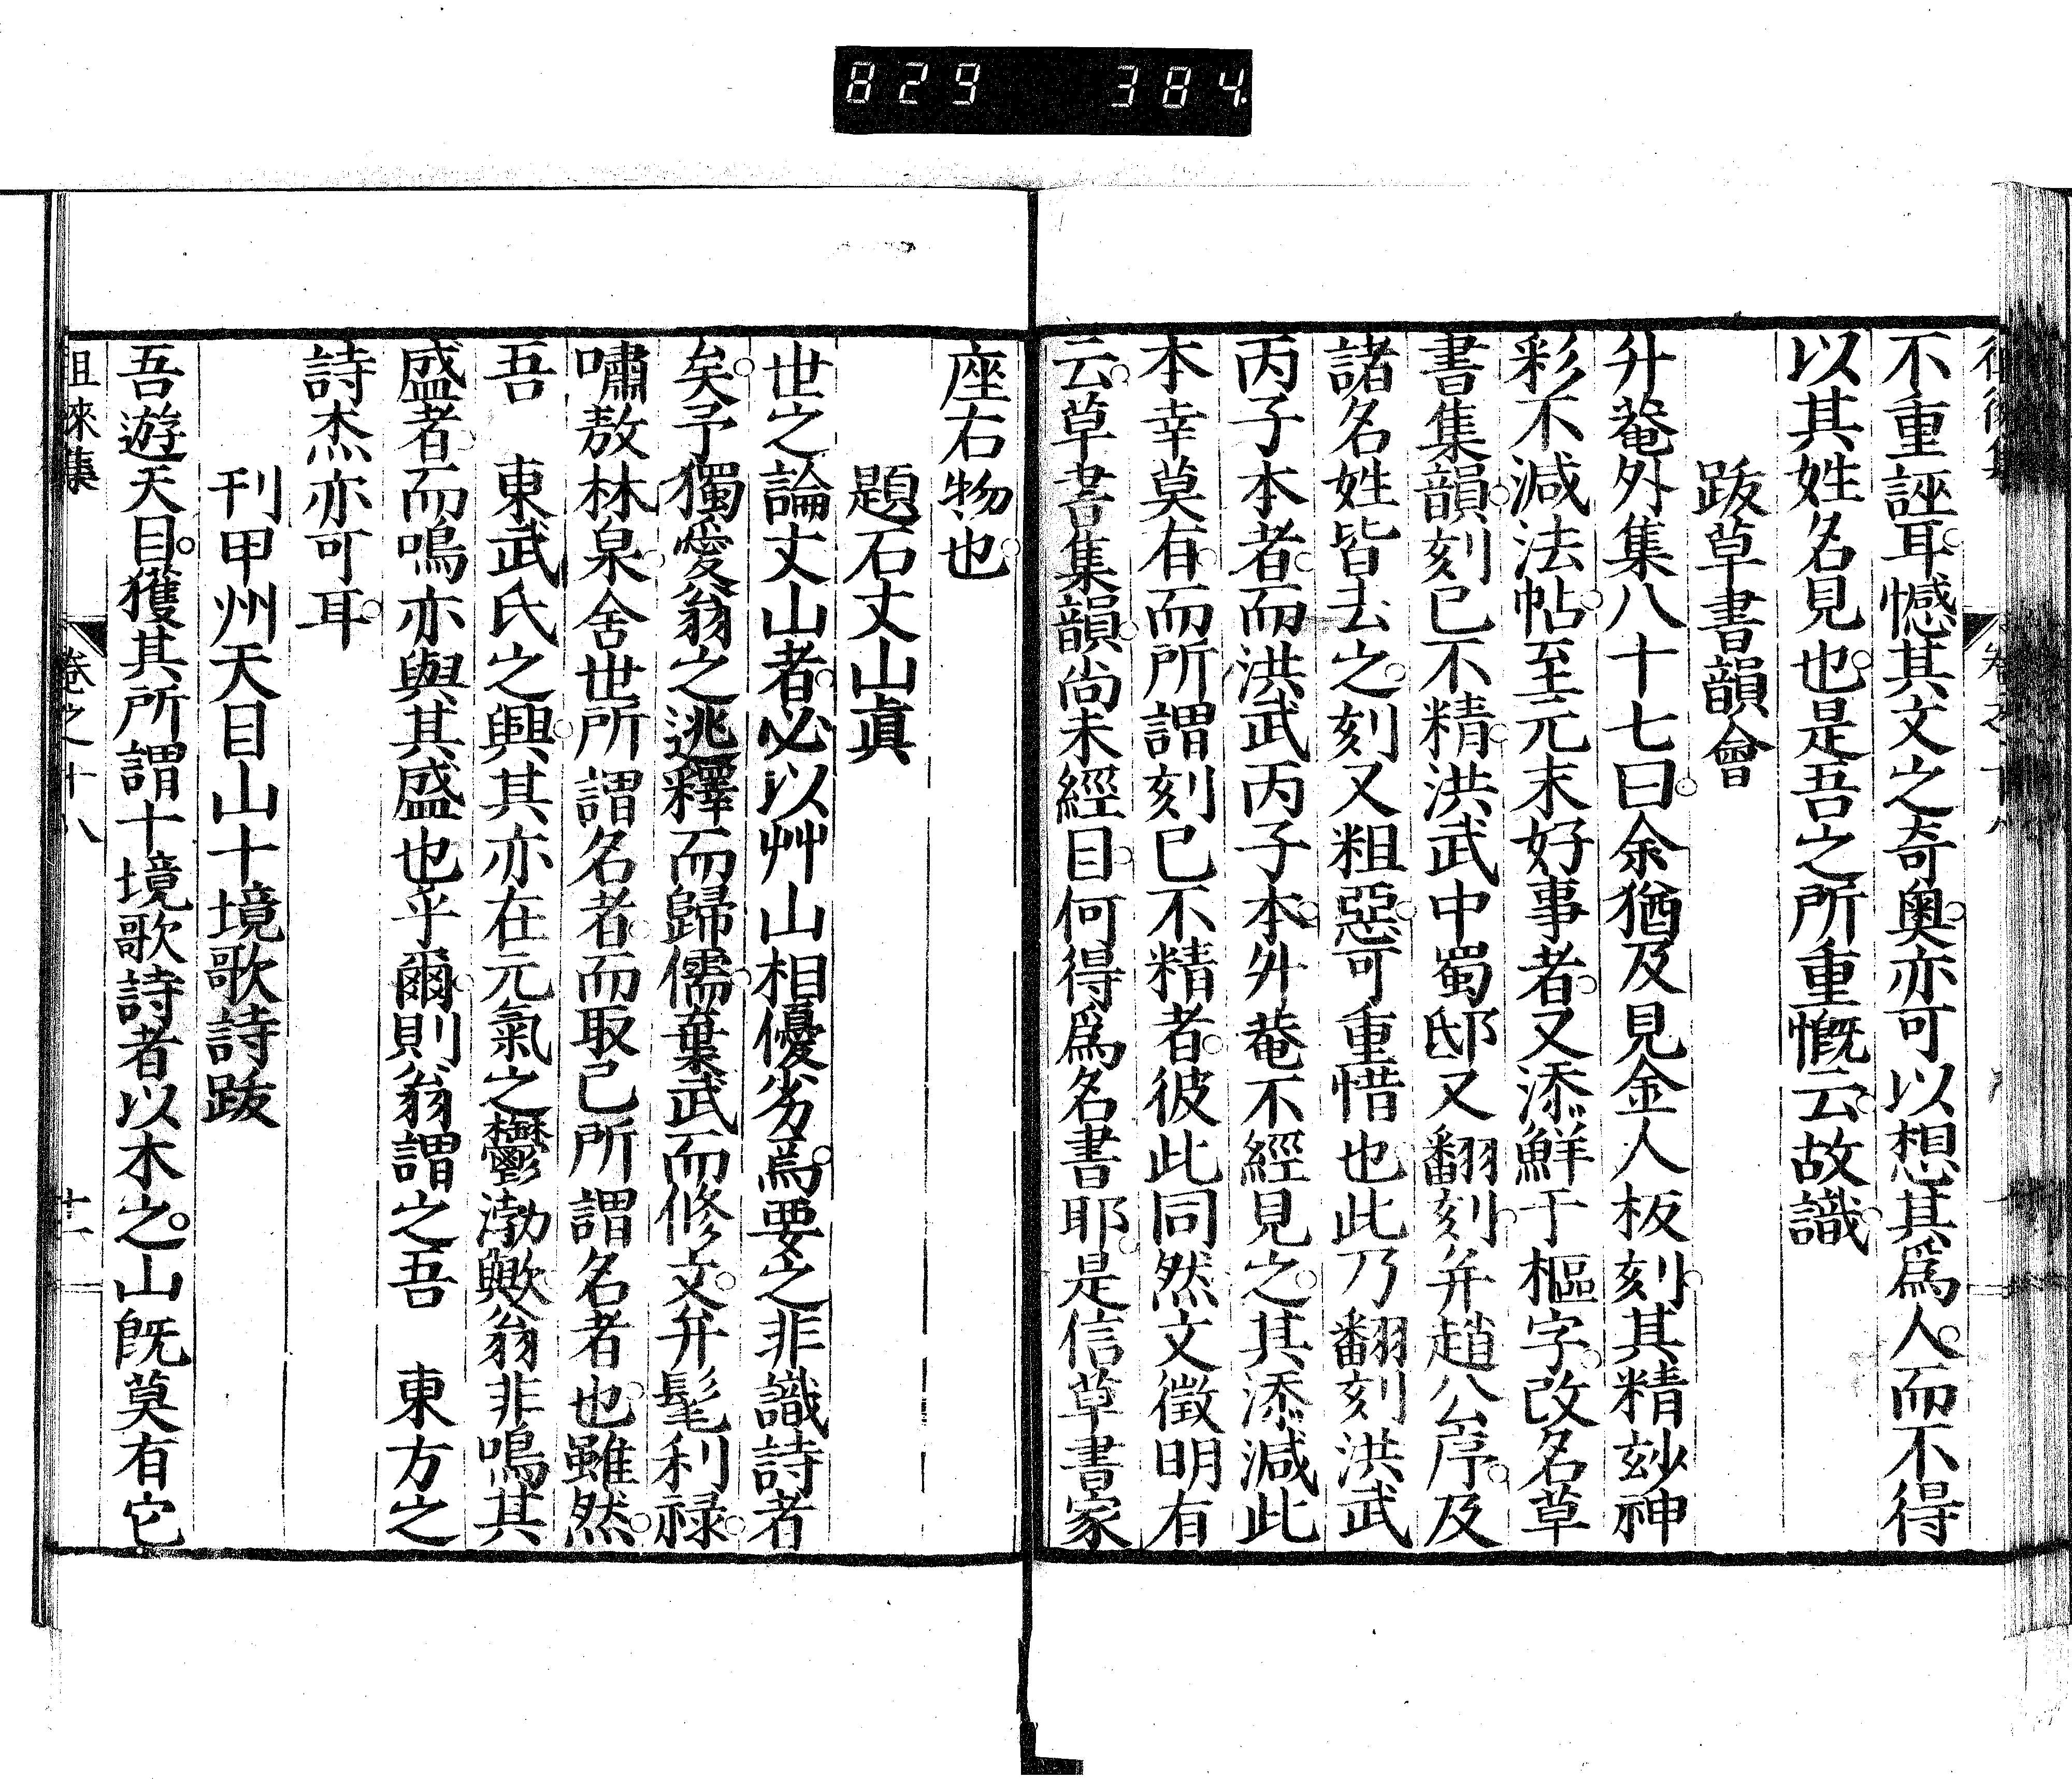 829 384
不重誣耳憾其文之奇奧亦可以想其爲人而不得
以其姓名見也是吾之所重慨云故識
跋草書韻會
升菴外集八十七曰余猶及見金人板刻其精玅神
彩不減法帖至元末好事者又添鮮于樞字改名草
書集韻刻已不精洪武中蜀邸又翻刻并趙公序及
諸名姓皆去之刻又粗惡可重惜也此乃翻刻洪武
丙子本者而洪武丙子本升菴不經見之其添減此
本幸莫有而所謂刻已不精者彼此同然文徵明有
云草書集韻尚未經目何得爲名書耶是信草書家
座右物也
題石丈山眞
世之論丈山者必以艸山相優劣焉要之非識詩者
矣予獨愛翁之逃釋而歸儒棄武而修文弁髦利祿
嘯敖林泉舍世所謂名者而取己所謂名者也雖然
吾 東武氏之興其亦在元氣之鬱渤歟翁非鳴其
盛者而鳴亦與其盛也乎爾則翁謂之吾 東方之
詩杰亦可耳
刊甲州天目山十境歌詩跋
吾遊天目獲其所謂十境歌詩者以木之山旣莫有它
徂徠集 卷之十八 十一